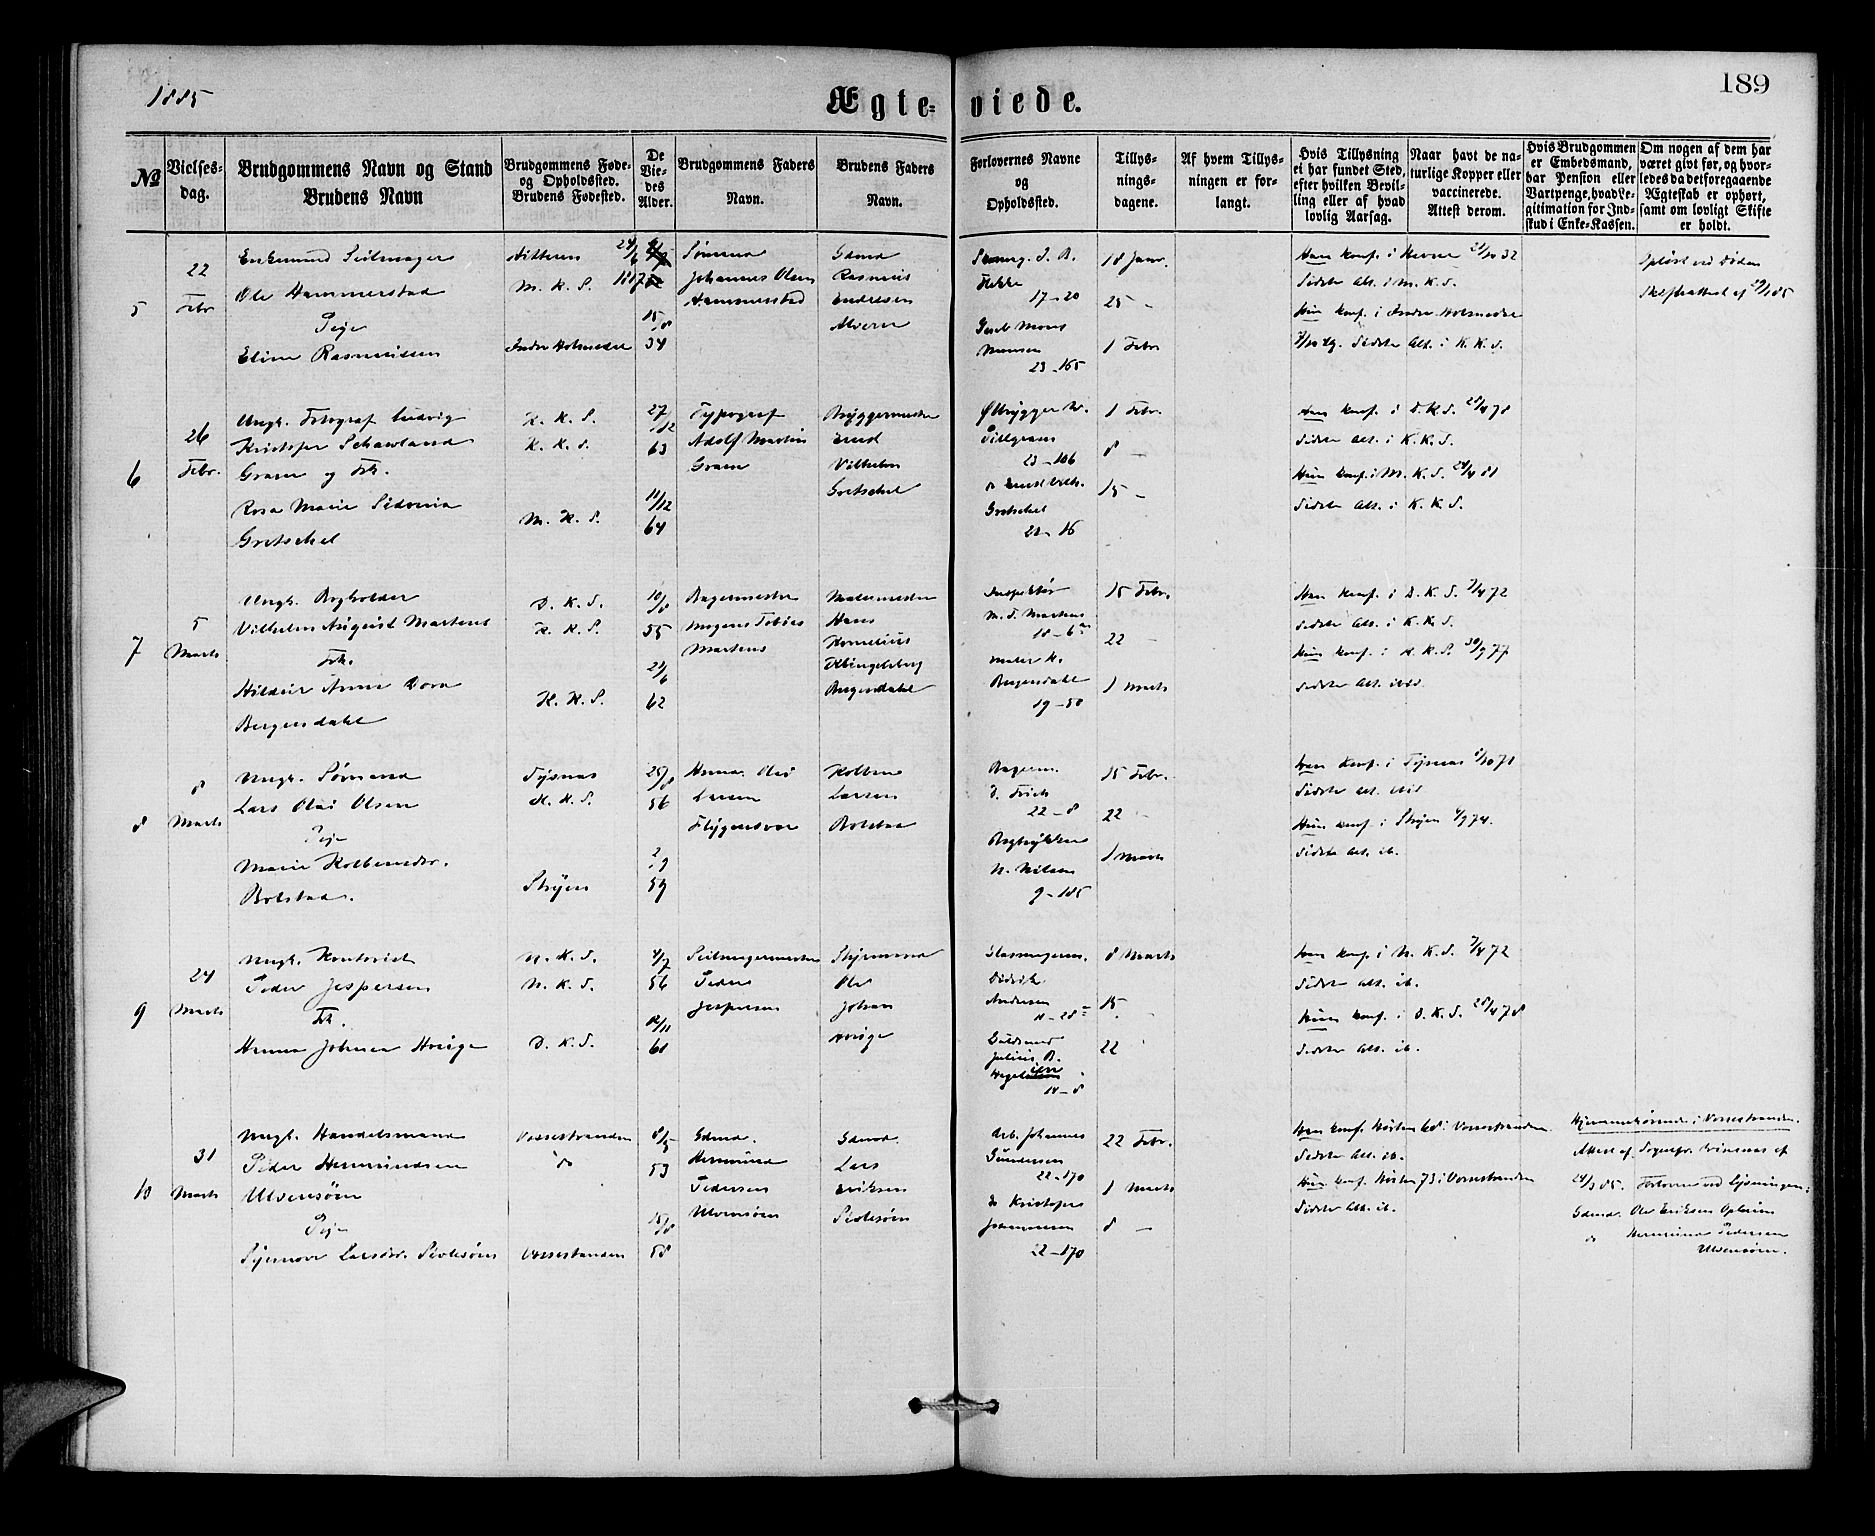 1885
Ægte-
viede.
189
No
Vielses-
dag.
Brudgommens Navn og Stand
Brudens Navn
Brudgommens Føde-
og Opholdssted.
Brudens Fødested.
De
Vie-
des
Alder.
Brudgommens Faders
Navn.
Brudens Faders
Navn.
Forlovernes Navne
og
Opholdssted.
Tillys-
nings-
dagene.
Af hvem Tillys-
ningen er for-
langt.
Hvis Tillysning
ei har fundet Sted,
efter hvilken Bevil-
ling eller af hvad
lovlig Aarsag.
Naar havt de na-
turlige Kopper eller
vaccinerede.
Attest derom.
Hvis Brudgommen
er Embedsmand,
har Pension eller
Vartpenge, hvad Le-
gitimation for Ind-
skud i Enke-Kassen.
Om nogen af dem har
været givt før, og hvor-
ledes da det foregaaende
Ægteskab er ophørt,
samt om lovligt Skifte
er holdt.
5
22
Febr
Enkemand Seilmager
Ole Hammerstad
Pige
Eline Rasmussen
Hitteren
M. K. S.
Indre Holmedal
24/6
1817
15/8
34
Sømand
Johannes Olsen
Hammerstad
Gdmd
Rasmus
Endresen
Alvern
Hekke
17-20
Mons
Monsen
23-165
18 Janr.
25 -
1 Febr
Han konf. i Hevne 21/10 32
Sidste Alt. i M. K. S.
Hun konf. i Indre Holmedal
Sidste Alt. i K. K. S.
Opløst ved Døden
Skifteattest af 29/1 85
6
26
Febr.
Ungk. Fotograf Ludvig
Kristofer Schawland
Graen og Frk.
Rosa Marie Sidonia
Gretschel
K. K. S.
K. K. S.
M. K. S.
27/12
63
11/12
64
Typograf
Adolf Martin
Graen
Bryggermester
Ernst
Vilhelm
Gretschel
Ølbrygger W.
Pillgram
23-106
do Ernst Vilh.
Gretschel
21-16
1 Febr.
8 -
15 -
Han konf. i D. K. S. 28/4 78
Sidste Alt. i K. K. S.
Hun konf. i M. K. S. 24/4 81
Sidste Alt. i K. K. S.
7
5
Marts
Ungk. Bogholder
Vilhelm August Martens
Frk.
Hildur Anna Dora
Bergendahl
D. K. S.
K. K. S.
K. K. S.
10/8
55
21/6
62
Bagermester
Mogens Tobias
Martens
Malermester
Hans
Kornelius
Klingelsberg
Bergendahl
Inspektør
M. T. Martens
18-6
Maler K.
Bergendahl
19-50
15 Febr.
22 -
1 Marts
Han konf. i D. K. S. 7/4 72
Sidste Alt. i K. K. S.
Hun konf. i K. K. S. 30/9 77
Sidste Alt. ibid.
8
8
Marts
Ungk. Sømand
Lars Olai Olsen
Pige
Marie Kolbensdtr.
Bolstad.
Tysnæs
K. K. S.
Stryen
25/8
56
2/9
59
Hmd. Olai
Larsen
Flygansvær
Kolben
Larsen
Bolstad
Bagerm.
J. Frich
22-8
N. Nilsen
9-185
15 Febr.
22
1 Marts
Han konf. i Tysnæs 1/10 71
Sidste Alt. ibid
Hun konf. i Stryen 6/9 74.
Sidste Alt. ib.
9
24
Marts
Ungk. Kontorist
Peder Jespersen
Frk.
Hanna Johnsen Hovige
N. K. S.
N. K. S.
D. K. S.
4/7
56
12/11
61
Seilmagermester
Peder
Jespersen
Styrmand
Ole
Johan
Hovige
Glasmagerm.
Didrik
Andersen
Guldsmed
Julius B.
14-8
8 Marts
15
22
Han konf. i N. K. S. 7/4 72
Sidste Alt. ib.
Hun konf. i D. K. S. 28/4 78
Sidste Alt. ib.
10
31
Marts
Ungk. Handelsmand
Peder Hermundsen
Ulvensøen
Pige
Synnøve Larsdtr. Sivlesøen
Vossestranden
do
Vossestranden
8/5
53
15/8
58
Gdmd.
Hermund
Pedersen
Ulvensøen
Gdmd.
Lars
Eriksen
Sivlesøen
Arb. Johannes
Gundersen
22-170
do Kristofer
Johannesen
22-170
22 Febr.
1 Marts
8 -
Han konf. Høsten 68 i Vossestranden
Sidste Alt. ib.
Hun konf. Høsten 73 i Vossestranden
Sidste Alt. ib.
Hjemmehørende i Vossestranden.
Attest af Sognepr. Brinsnæs af
24/3 85. Forlovere ved Lysningen:
Gdmd. Ole Eriksen Opheim
do Hermund Pedersen
Ulvensøen.